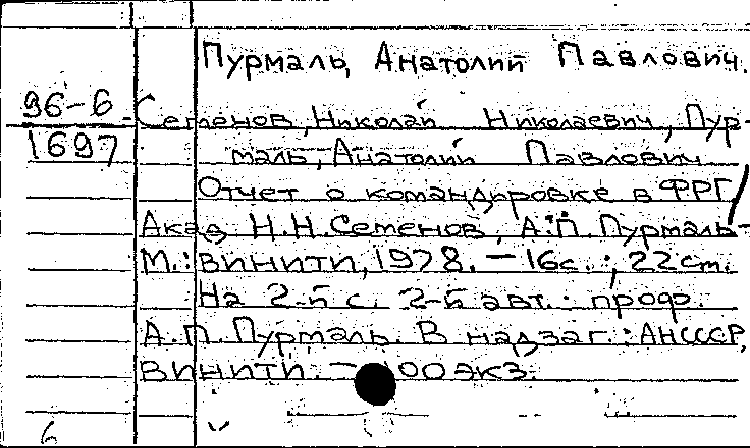 Пурмаль, Анатолий Павлович.
96-6
Семенов, Николай Николаевич, Пур-
1697
маль, Анатолий Павлович
Отчет о командировке в ФРГ/
Акад. Н.Н.Семенов, А.П.Пурмаль.-
М.: ВИНИТИ, 1978. - 16с.; 22 см.
На 2-5 с. 2-5 авт.: проф.
А.П. Пурмаль. В надзаг.: АН СССР,
ВИНИТИ. - 00 экз.
6